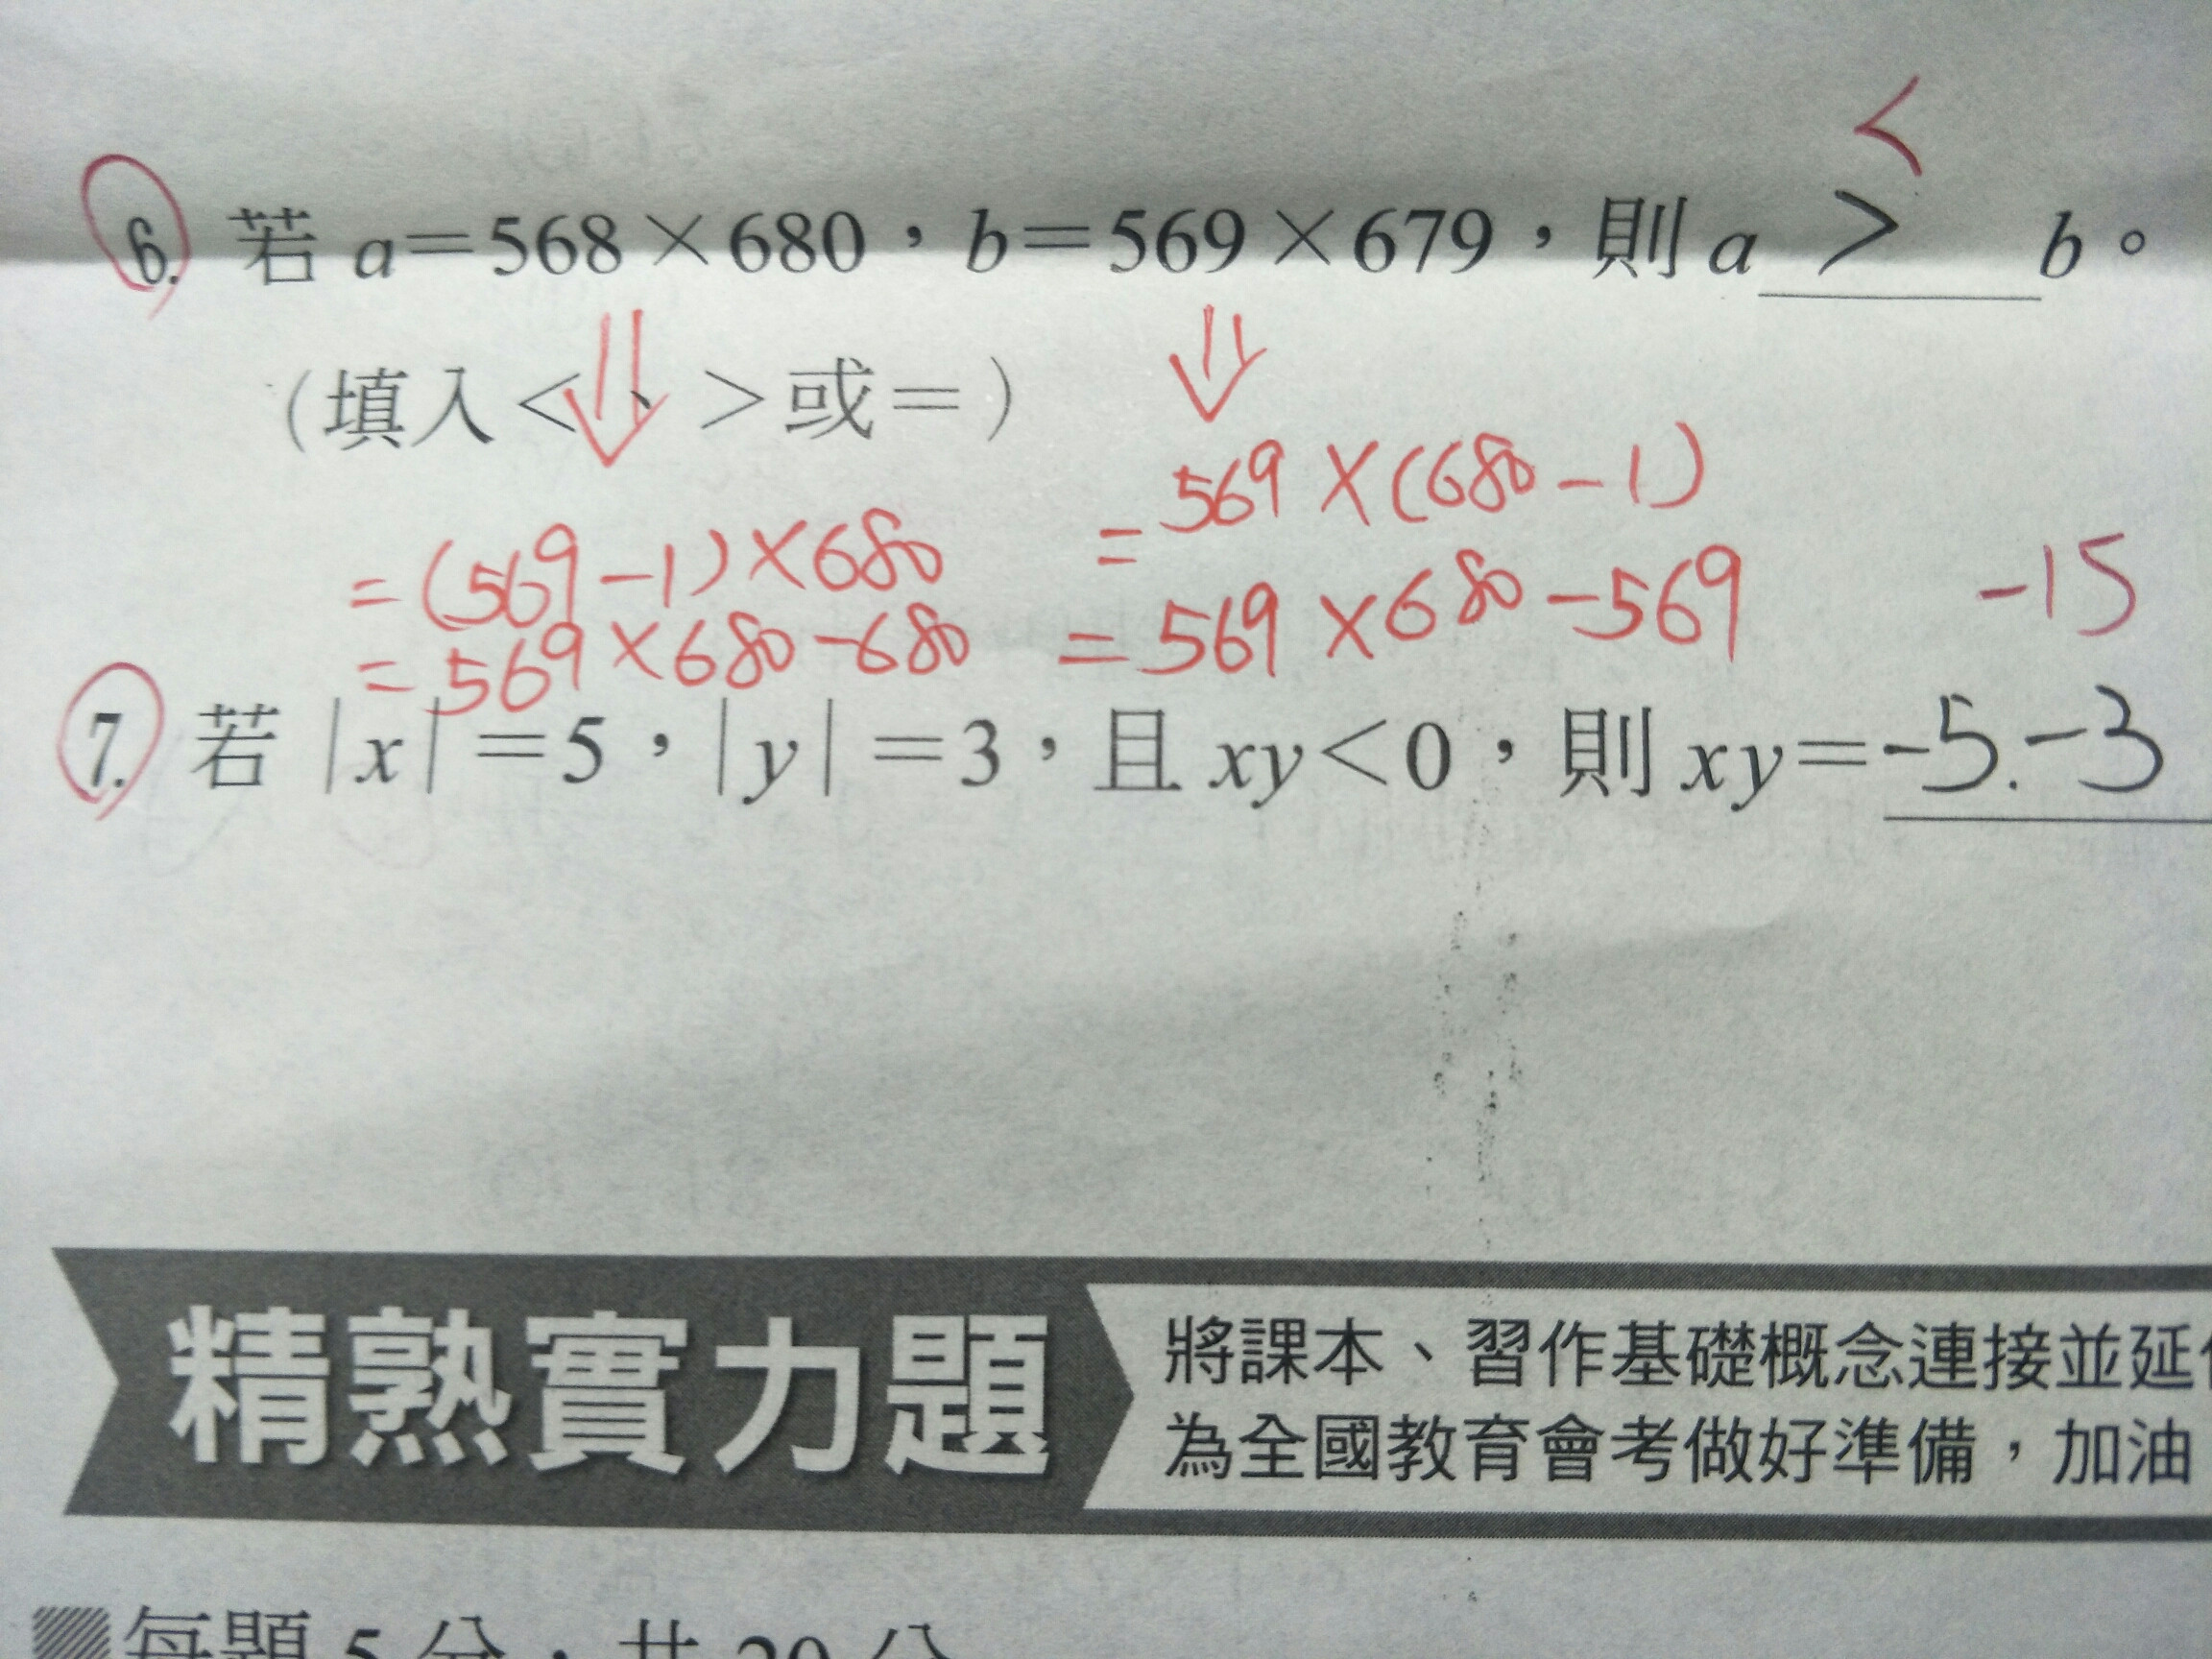 <
6. 若 a=568×680，b=569×679，則 a > b。
(填入<、>或=)
=(569-1)×680
=569×(680-1)
=569×680-680
=569×680-569
-15
7. 若 |x|=5，|y|=3，且 xy<0，則 xy=-5.-3
精熟實力題
將課本、習作基礎概念連接並延
為全國教育會考做好準備，加油
每題 5 分，共 20 分